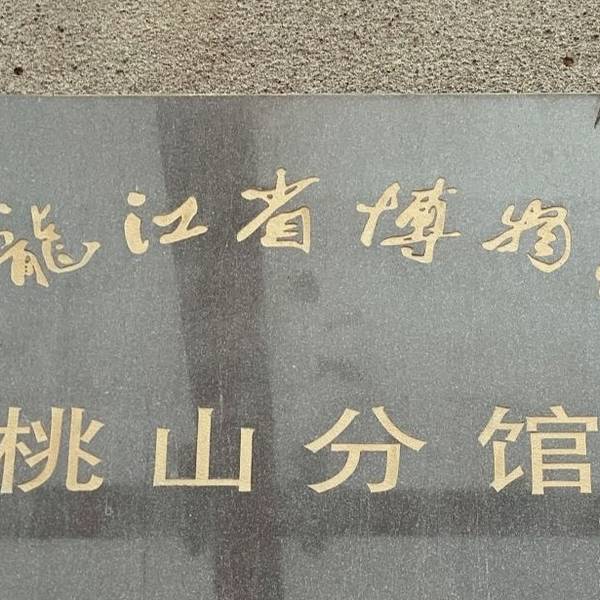 龍江省博物
桃山分馆